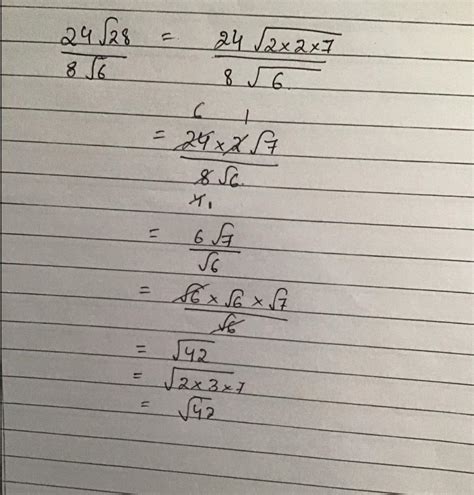 24√28 / 8√6 = 24√(2×2×7) / 8√6
6 1
= 24 × 2√7 / 8√6
4 1
= 6√7 / √6
= √6 × √6 × √7 / √6
= √42
= √(2×3×7)
= √42